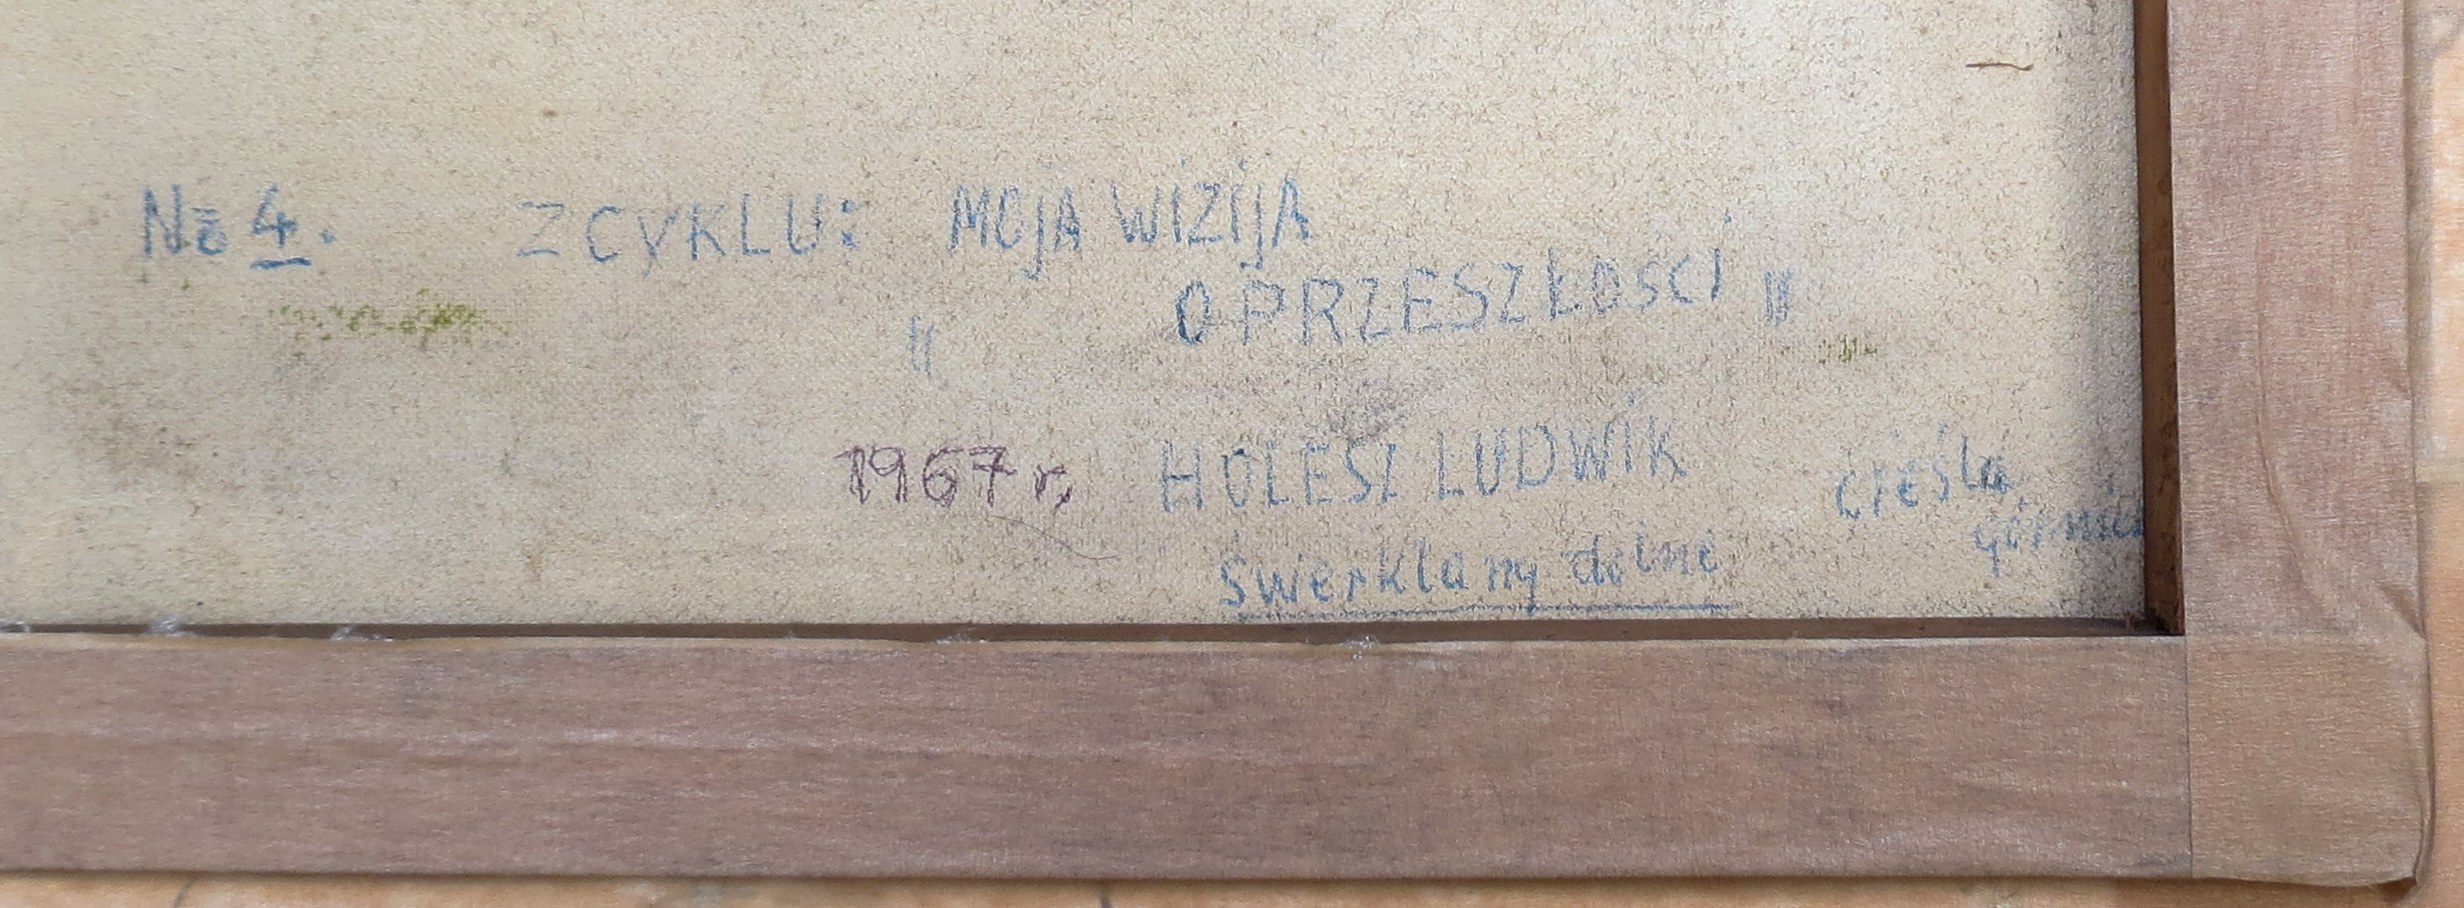 № 4. Z CYKLU: MOJA WIZIJA
„ O PRZESZŁOŚCI "
1967 r, HOLESZ LUDWIK cieśla
Świerklany dolne